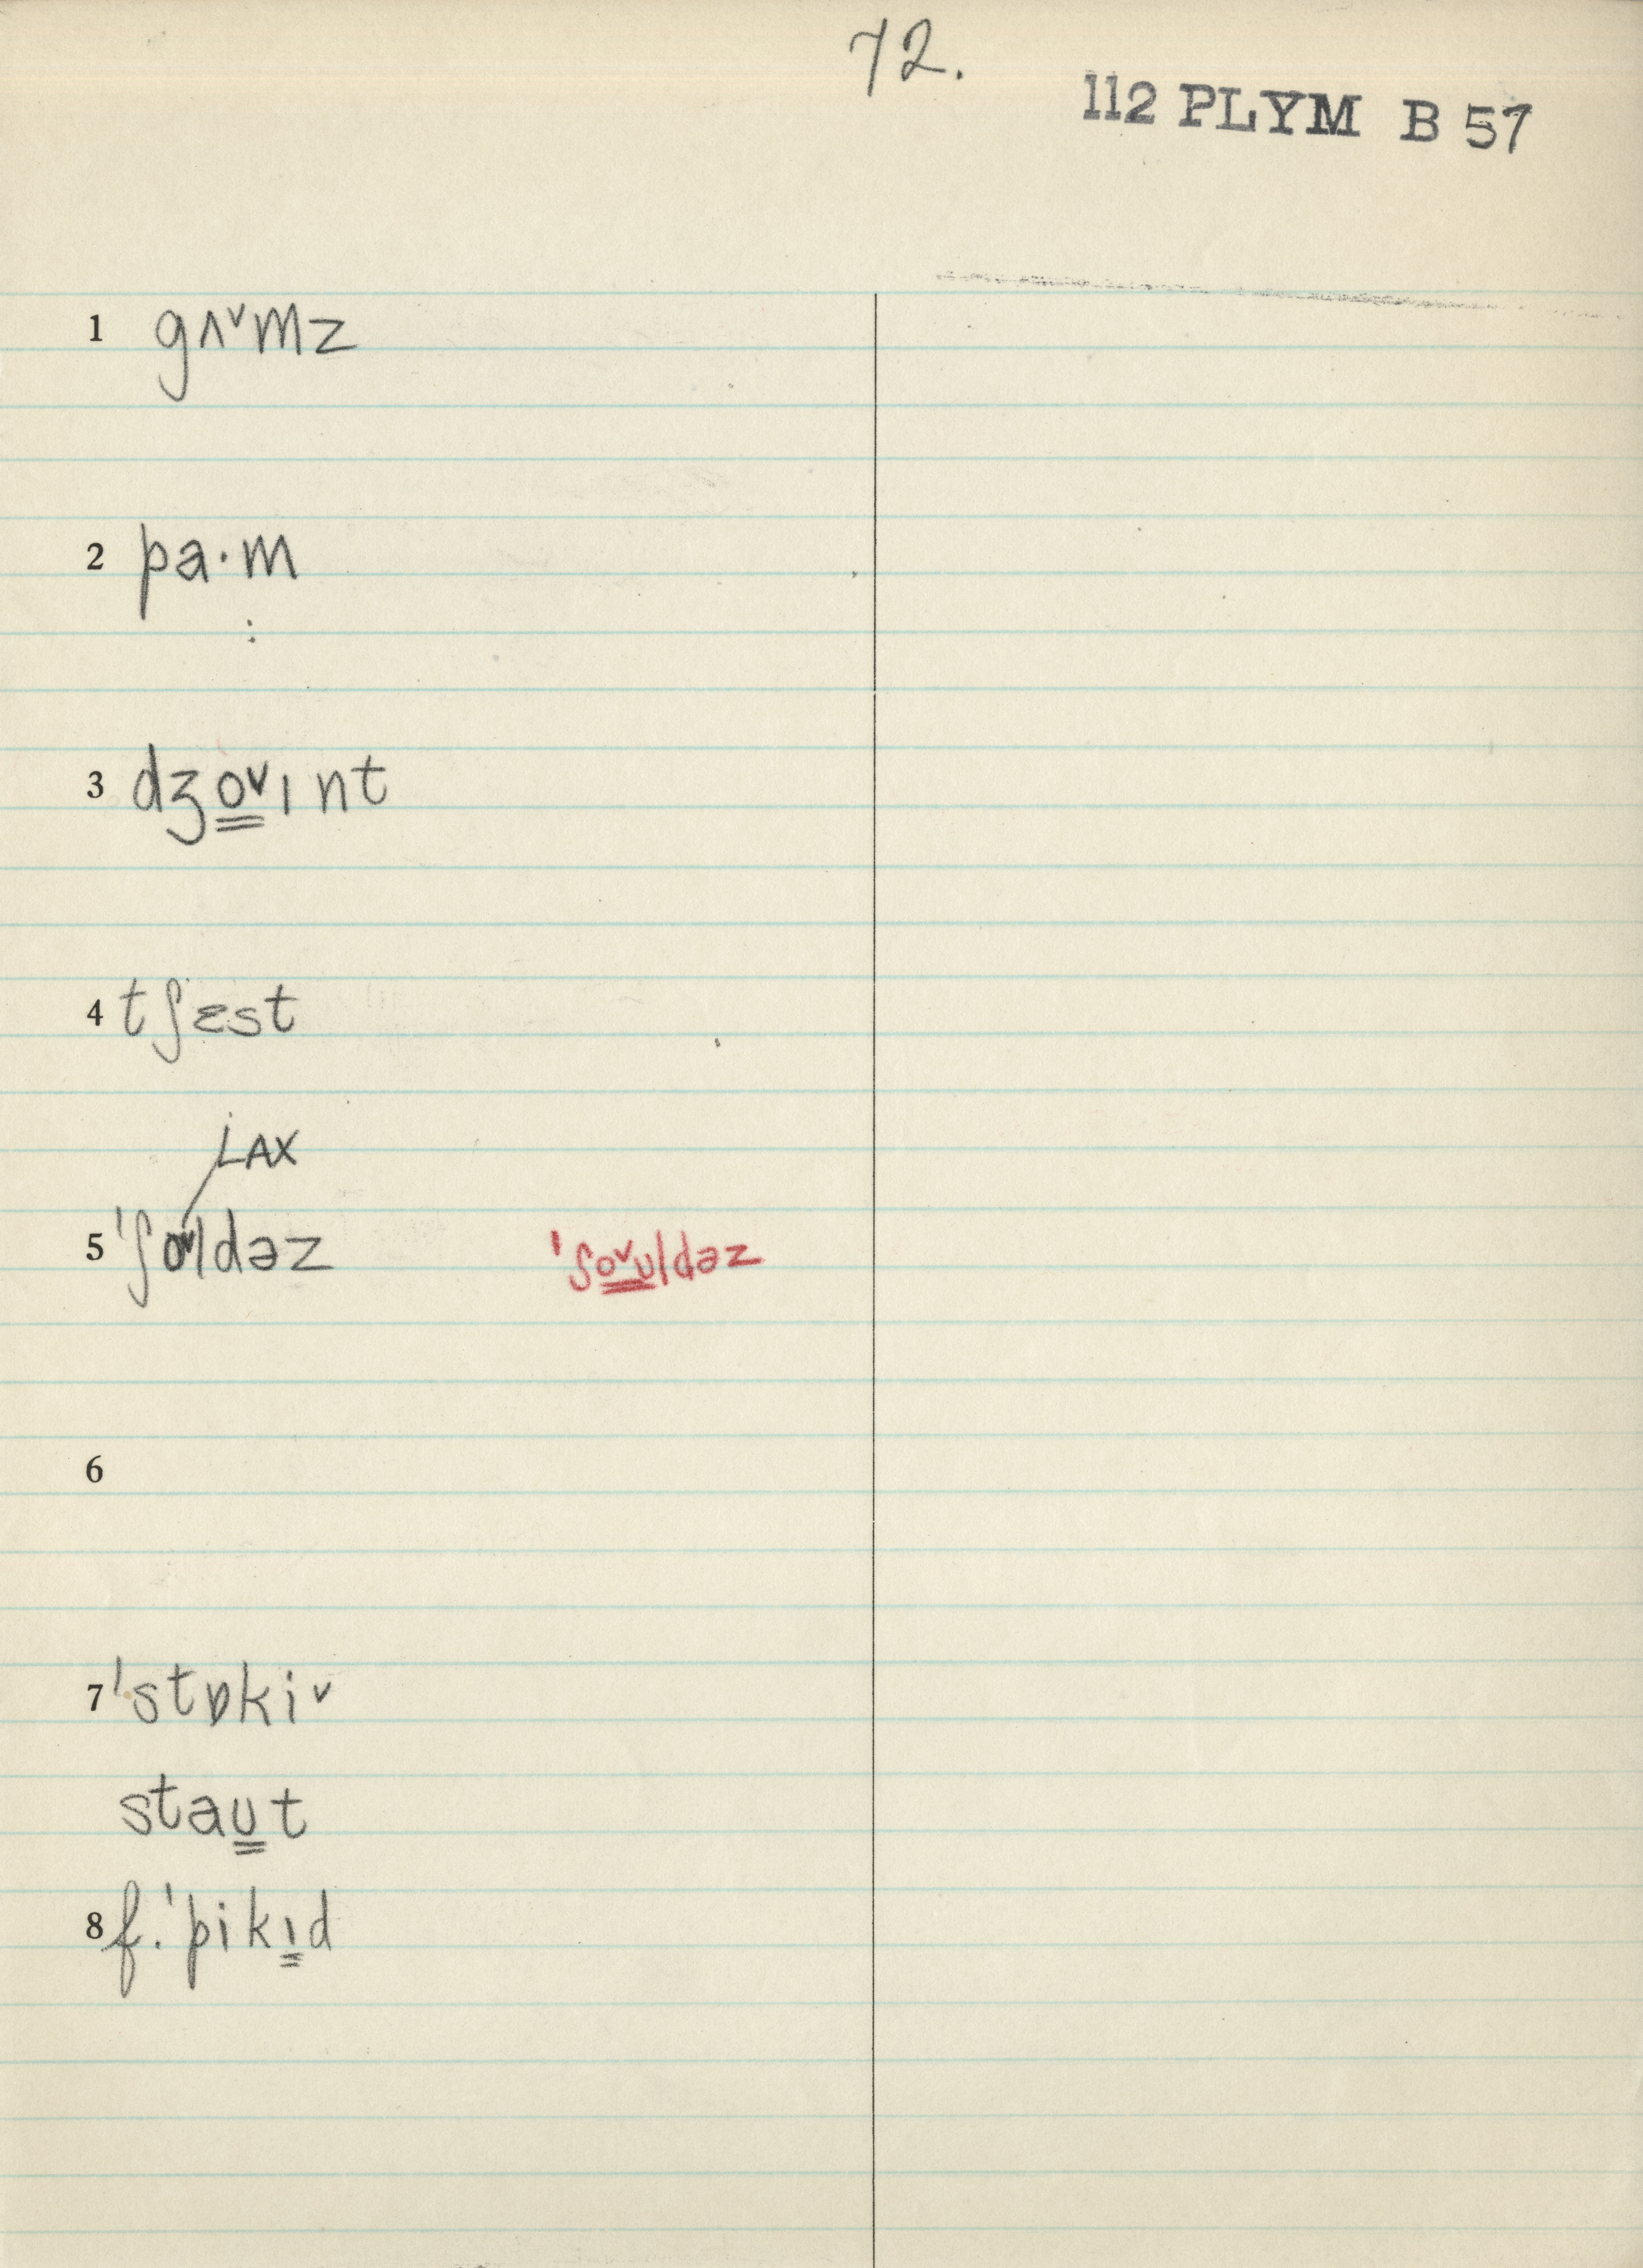 72.
112 PLYM B 57
1 gʌ˅mz
2 pa·m
:
3 dʒo̳˅ɪnt
4 tʃɛst
LAX
5 ˈʃo˅ldəz ˈʃo̳˅ʊ̳ldəz
6
7 ˈstɒki˅
staʊ̳t
8 f. ˈpikɪ̳d